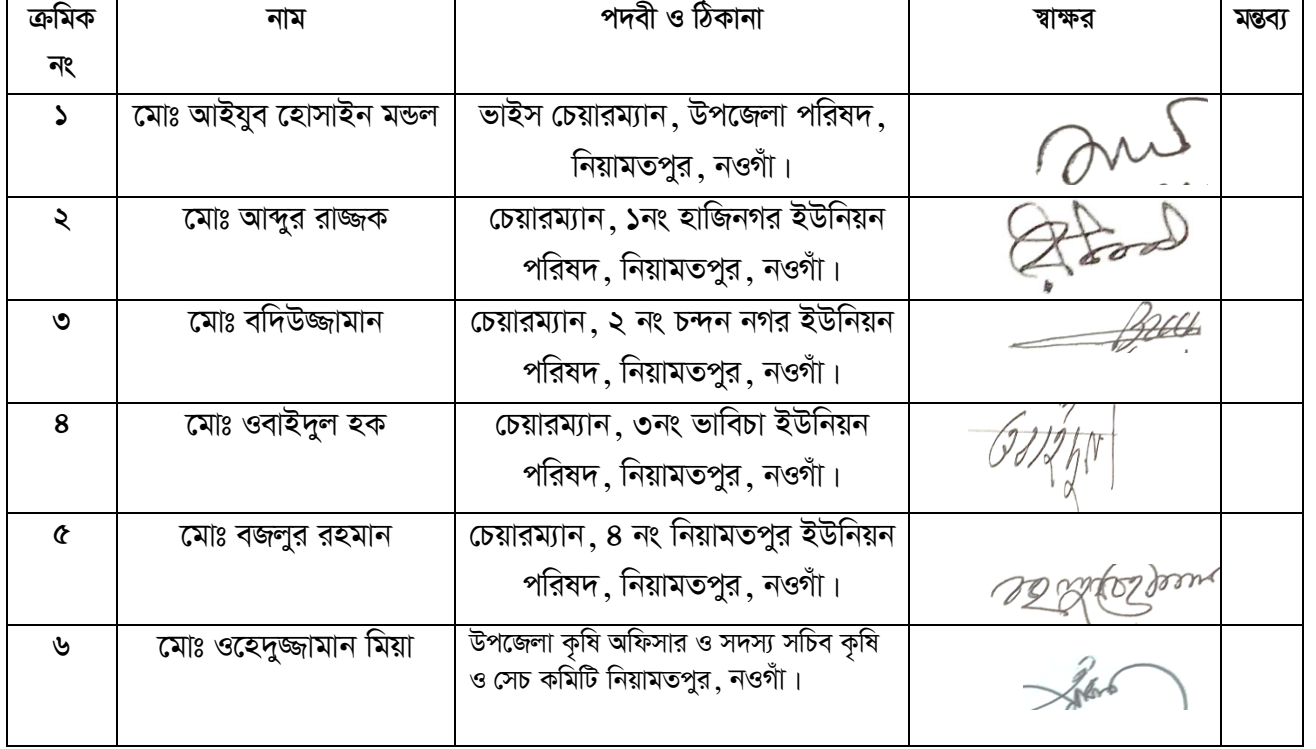 ক্রমিক নং নাম পদবী ও ঠিকানা স্বাক্ষর মন্তব্য
১ মোঃ আইযুব হোসাইন মন্ডল ভাইস চেয়ারম্যান, উপজেলা পরিষদ,
নিয়ামতপুর, নওগাঁ।
২ মোঃ আব্দুর রাজ্জক চেয়ারম্যান, ১নং হাজিনগর ইউনিয়ন
পরিষদ, নিয়ামতপুর, নওগাঁ।
৩ মোঃ বদিউজ্জামান চেয়ারম্যান, ২ নং চন্দন নগর ইউনিয়ন
পরিষদ, নিয়ামতপুর, নওগাঁ।
৪ মোঃ ওবাইদুল হক চেয়ারম্যান, ৩নং ভাবিচা ইউনিয়ন
পরিষদ, নিয়ামতপুর, নওগাঁ।
ওবাইদুল
৫ মোঃ বজলুর রহমান চেয়ারম্যান, ৪ নং নিয়ামতপুর ইউনিয়ন
পরিষদ, নিয়ামতপুর, নওগাঁ।
৬ মোঃ ওহেদুজ্জামান মিয়া উপজেলা কৃষি অফিসার ও সদস্য সচিব কৃষি
ও সেচ কমিটি নিয়ামতপুর, নওগাঁ।